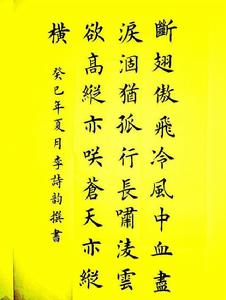 斷翅傲飛冷風中血盡
淚涸猶孤行長嘯淩雲
欲高縱亦咲蒼天亦縱
橫
癸巳年夏月李詩韵撰書